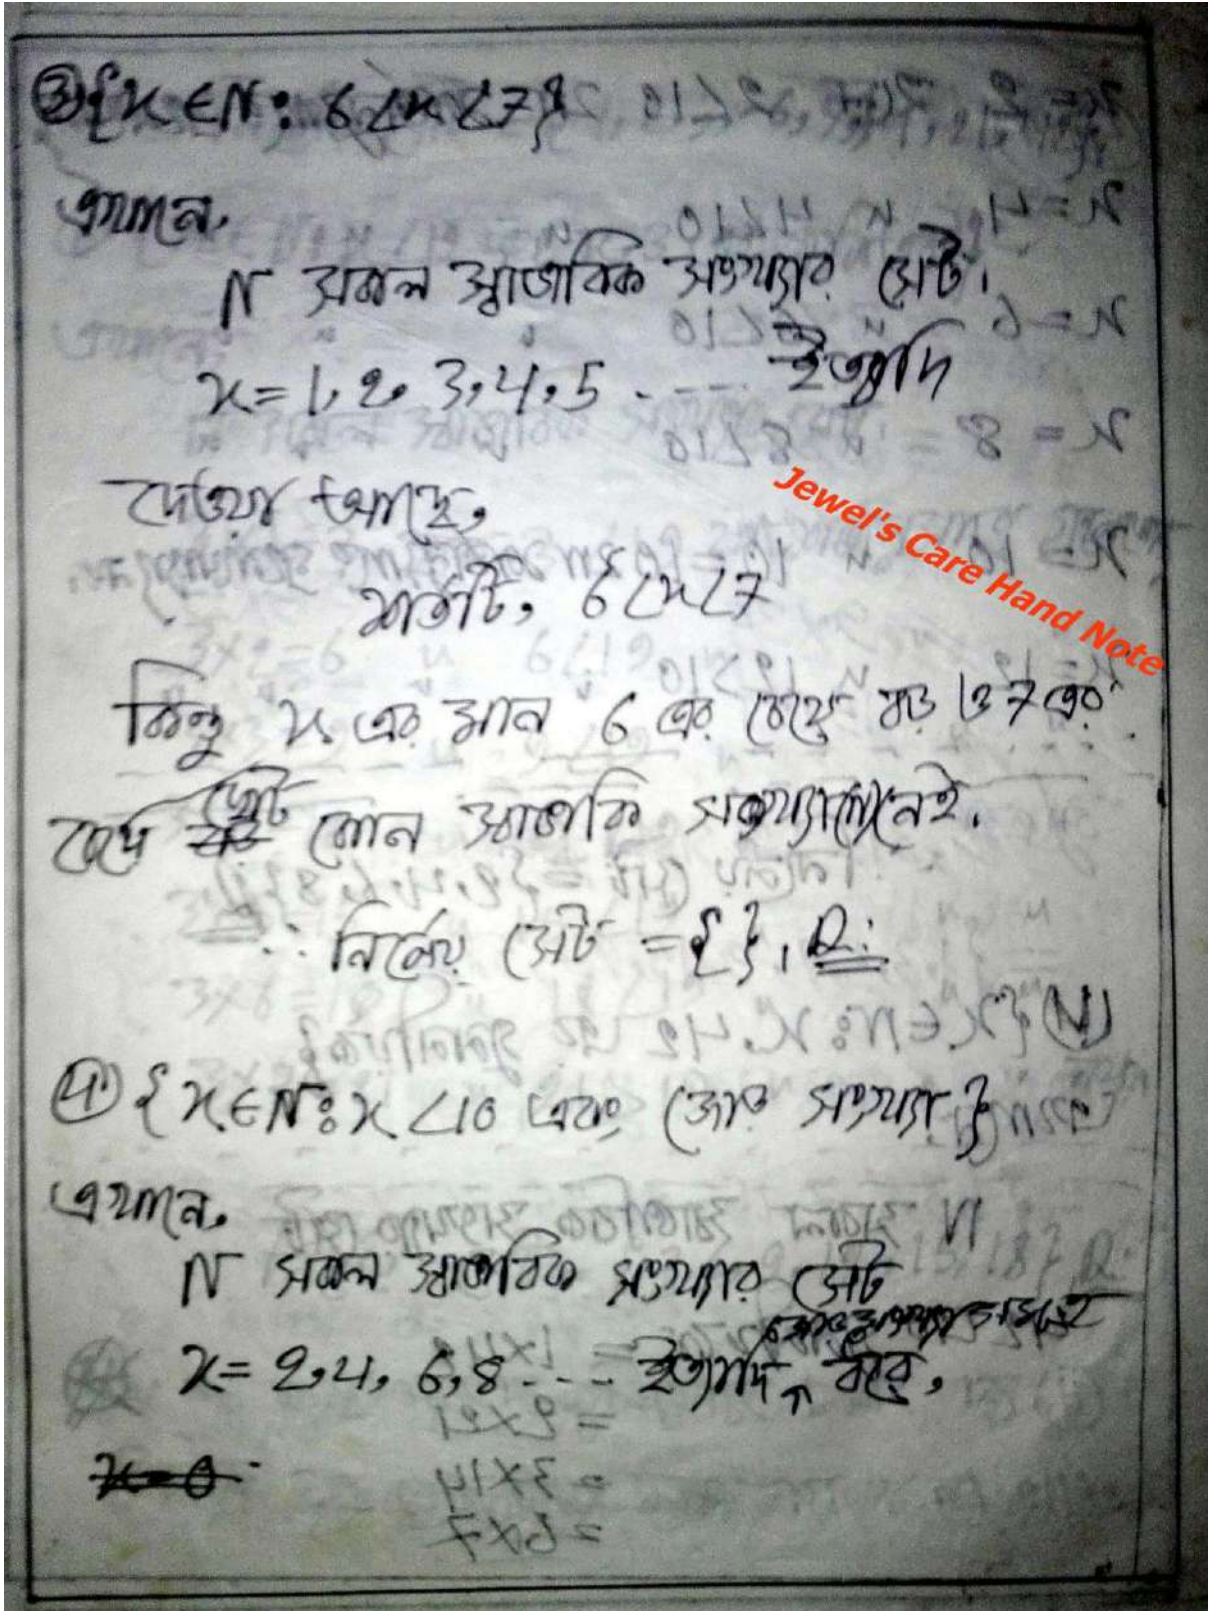 ③ {x ∈ N: 6 < x < 7}
এখানে,
N সকল স্বাভাবিক সংখ্যার সেট।
x = 1, 2, 3, 4, 5 .... ইত্যাদি
দেওয়া আছে,
শর্তটি, 6 < x < 7
Jewel's Care Hand Note
কিন্তু x এর মান 6 এর চেয়ে বড় ও 7 এর
চেয়ে ছোট কোন স্বাভাবিক সংখ্যা নেই।
∴ নির্ণেয় সেট = { }। Ans:
④ {x ∈ N: x < 10 এবং জোড় সংখ্যা}
এখানে,
N সকল স্বাভাবিক সংখ্যার সেট
x = 2, 4, 6, 8 .... ইত্যাদি ধরে,
x = 0